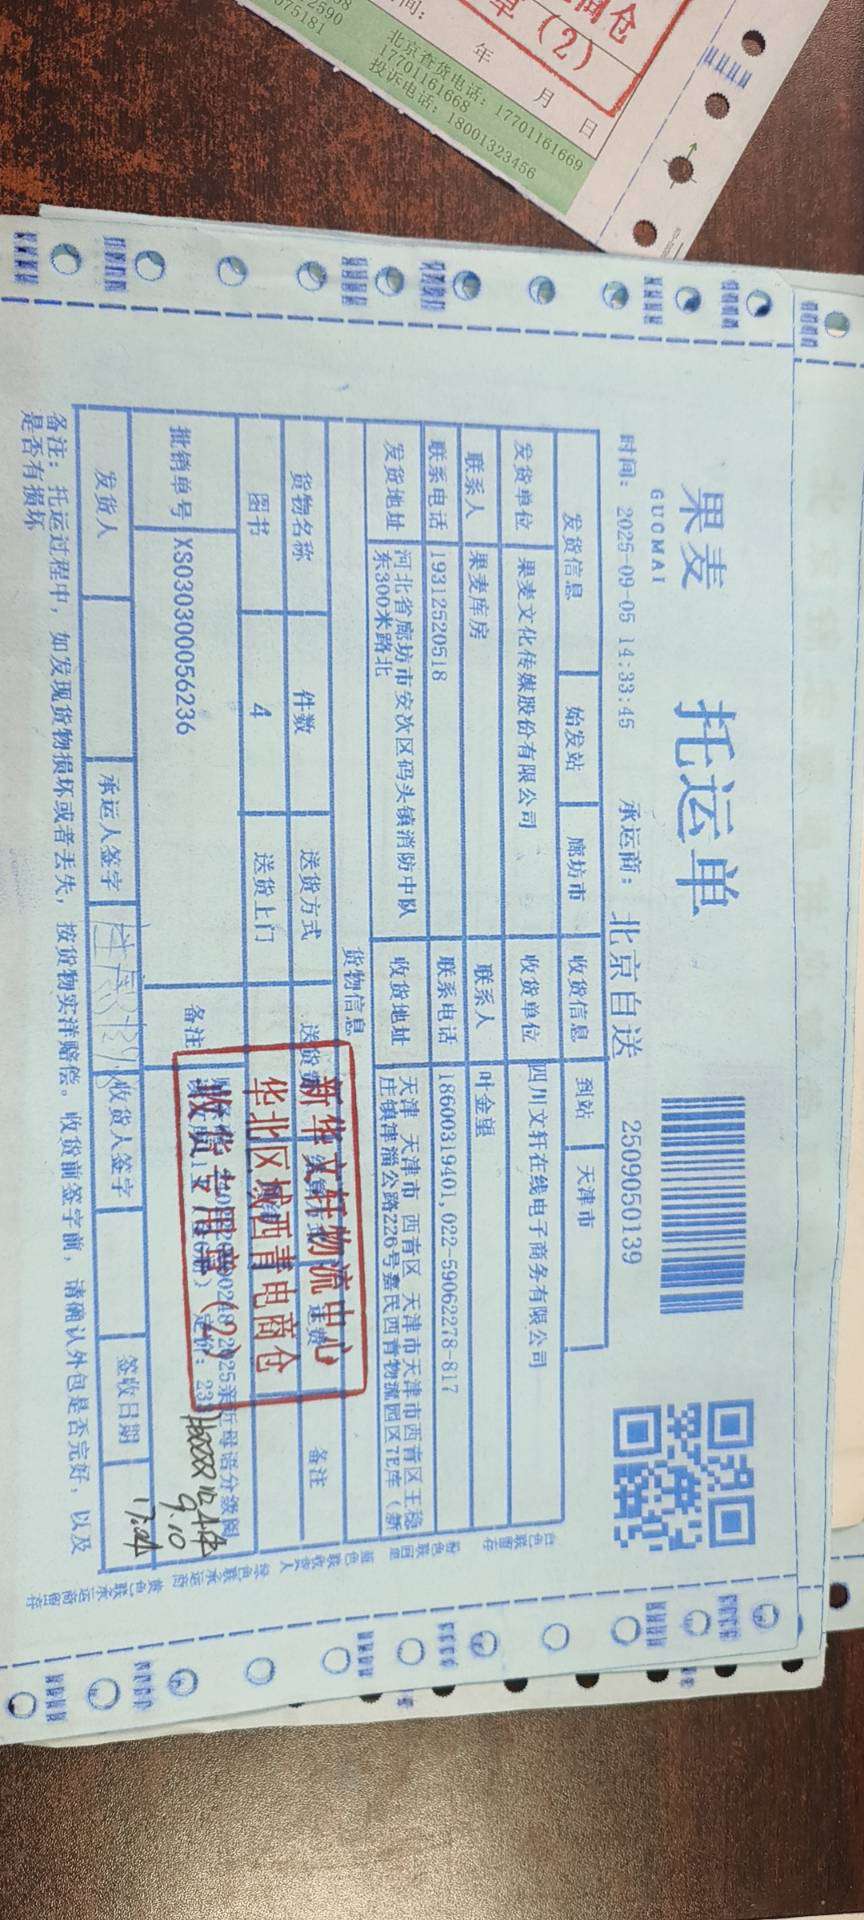 北京查货电话：17701161669
17701161668
投诉电话：18001323456
年 月 日
果麦
GUOMAI
托运单
时间：2025-09-05 14:33:45 承运商：北京自送 2509050139
发货信息 始发站 廊坊市 收货信息 到站 天津市
发货单位 果麦文化传媒股份有限公司 收货单位 四川文轩在线电子商务有限公司
联系人 果麦库房 联系人 叶金望
联系电话 19312520518 联系电话 18600319401,022-59062278-817
发货地址 河北省廊坊市安次区码头镇消防中队
东300米路北
收货地址 天津 天津市 西青区 天津市天津市西青区王稳
庄镇津淄公路226号嘉民西青物流园区7E库（新
货物信息
货物名称 件数 送货方式 备注
图书 4 送货上门
批销单号 XS030300056236 备注
新华文轩物流中心
华北区域西青电商仓
收货专用章（2）
9.10
发货人 承运人签字 收货人签字 签收日期
备注：托运过程中，如发现货物损坏或者丢失，按货物实洋赔偿。收货前签字前，请确认外包是否完好，以及
是否有损坏